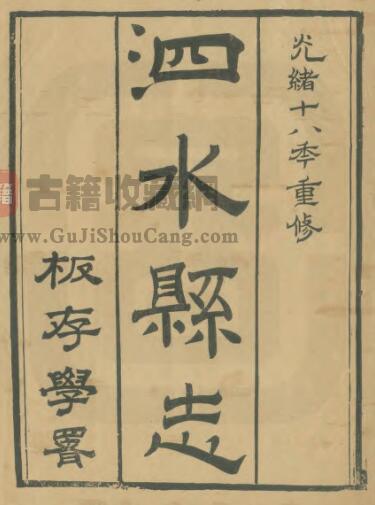 光緒十八年重修
泗水縣志
板存學署
古籍收藏網
www.GuJiShouCang.com
籍